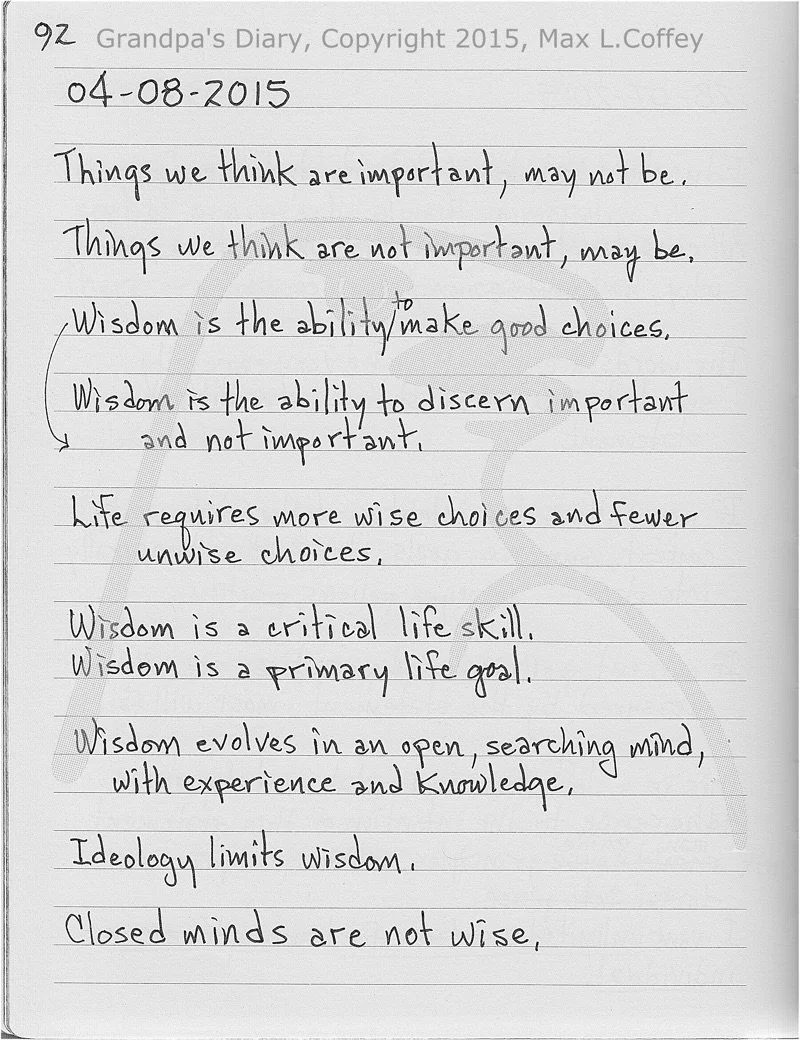 92 Grandpa's Diary, Copyright 2015, Max L.Coffey
04-08-2015
Things we think are important, may not be.
Things we think are not important, may be.
Wisdom is the ability to make good choices.
Wisdom is the ability to discern important
and not important.
Life requires more wise choices and fewer
unwise choices.
Wisdom is a critical life skill.
Wisdom is a primary life goal.
Wisdom evolves in an open, searching mind,
with experience and knowledge.
Ideology limits wisdom.
Closed minds are not wise.